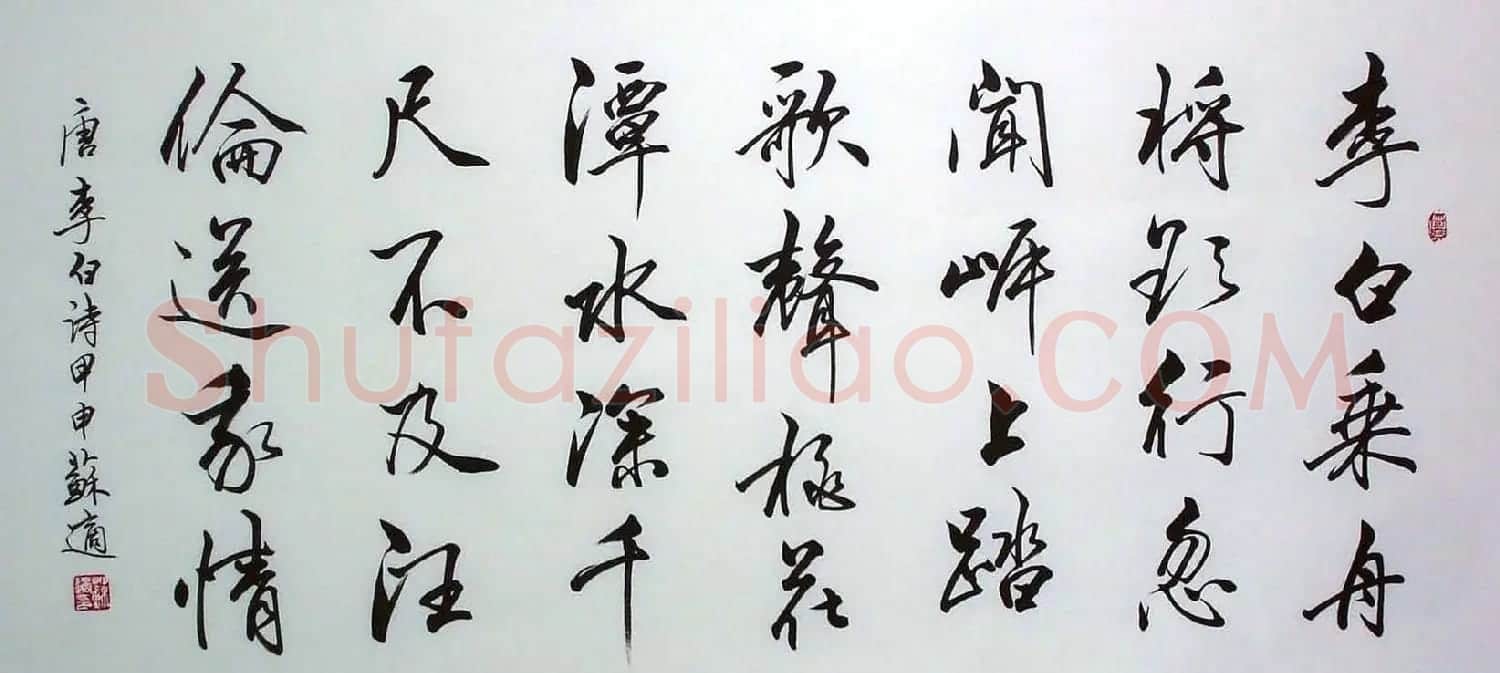 李白乘舟
将欲行忽
聞岸上踏
歌聲桃花
潭水深千
尺不及汪
倫送我情
唐李白詩甲申蘇適
Shufaziliao.COM